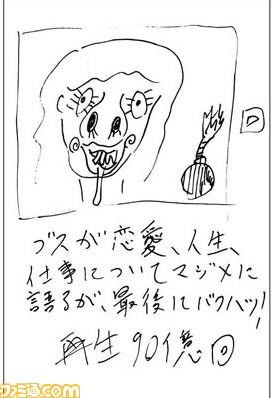 ブスが恋愛、人生、
仕事についてマジメに
語るが、最後にバクハツ!
再生90億回
ファミ通.com